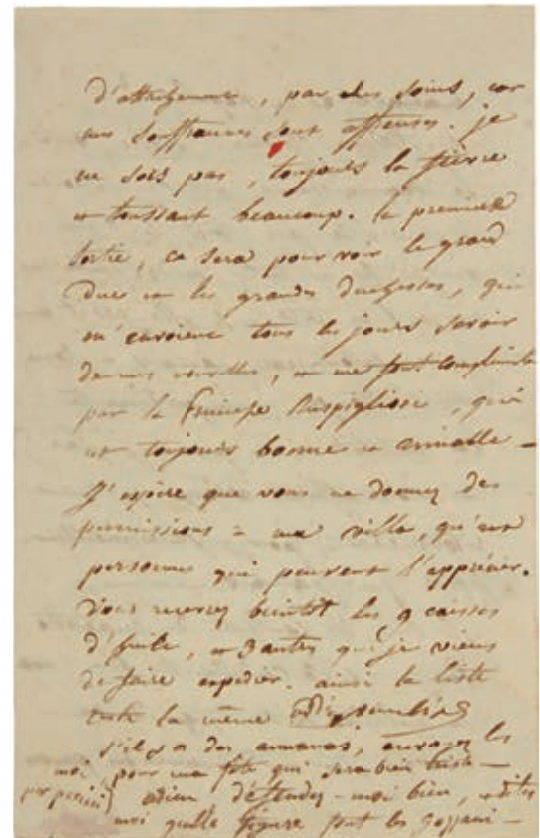 d'attachement, par des soins, car
mes souffrances sont affreuses. je
ne sors pas, toujours la fièvre
et toussant beaucoup. la premiere
sortie, ce sera pour voir le grand
Duc et les grandes duchesses, qui
m'envoient tous les jours savoir
de mes nouvelles, et me font complimenter
par la Principe Rospigliosi, qui
est toujours bonne et aimable –
J'espère que vous ne donnez des
permissions à ma villa, qu'aux
personnes qui peuvent l'apprécier.
Vous recevrez bientôt les 9 caisses
d'huile, et 3 autres que je viens
de faire expedier. ainsi la liste
reste la même
s'il y a des ananas, envoyez les
moi pour ma fête qui sera bien triste –
adieu, défendez-moi bien, et dites
moi quelle figure font les